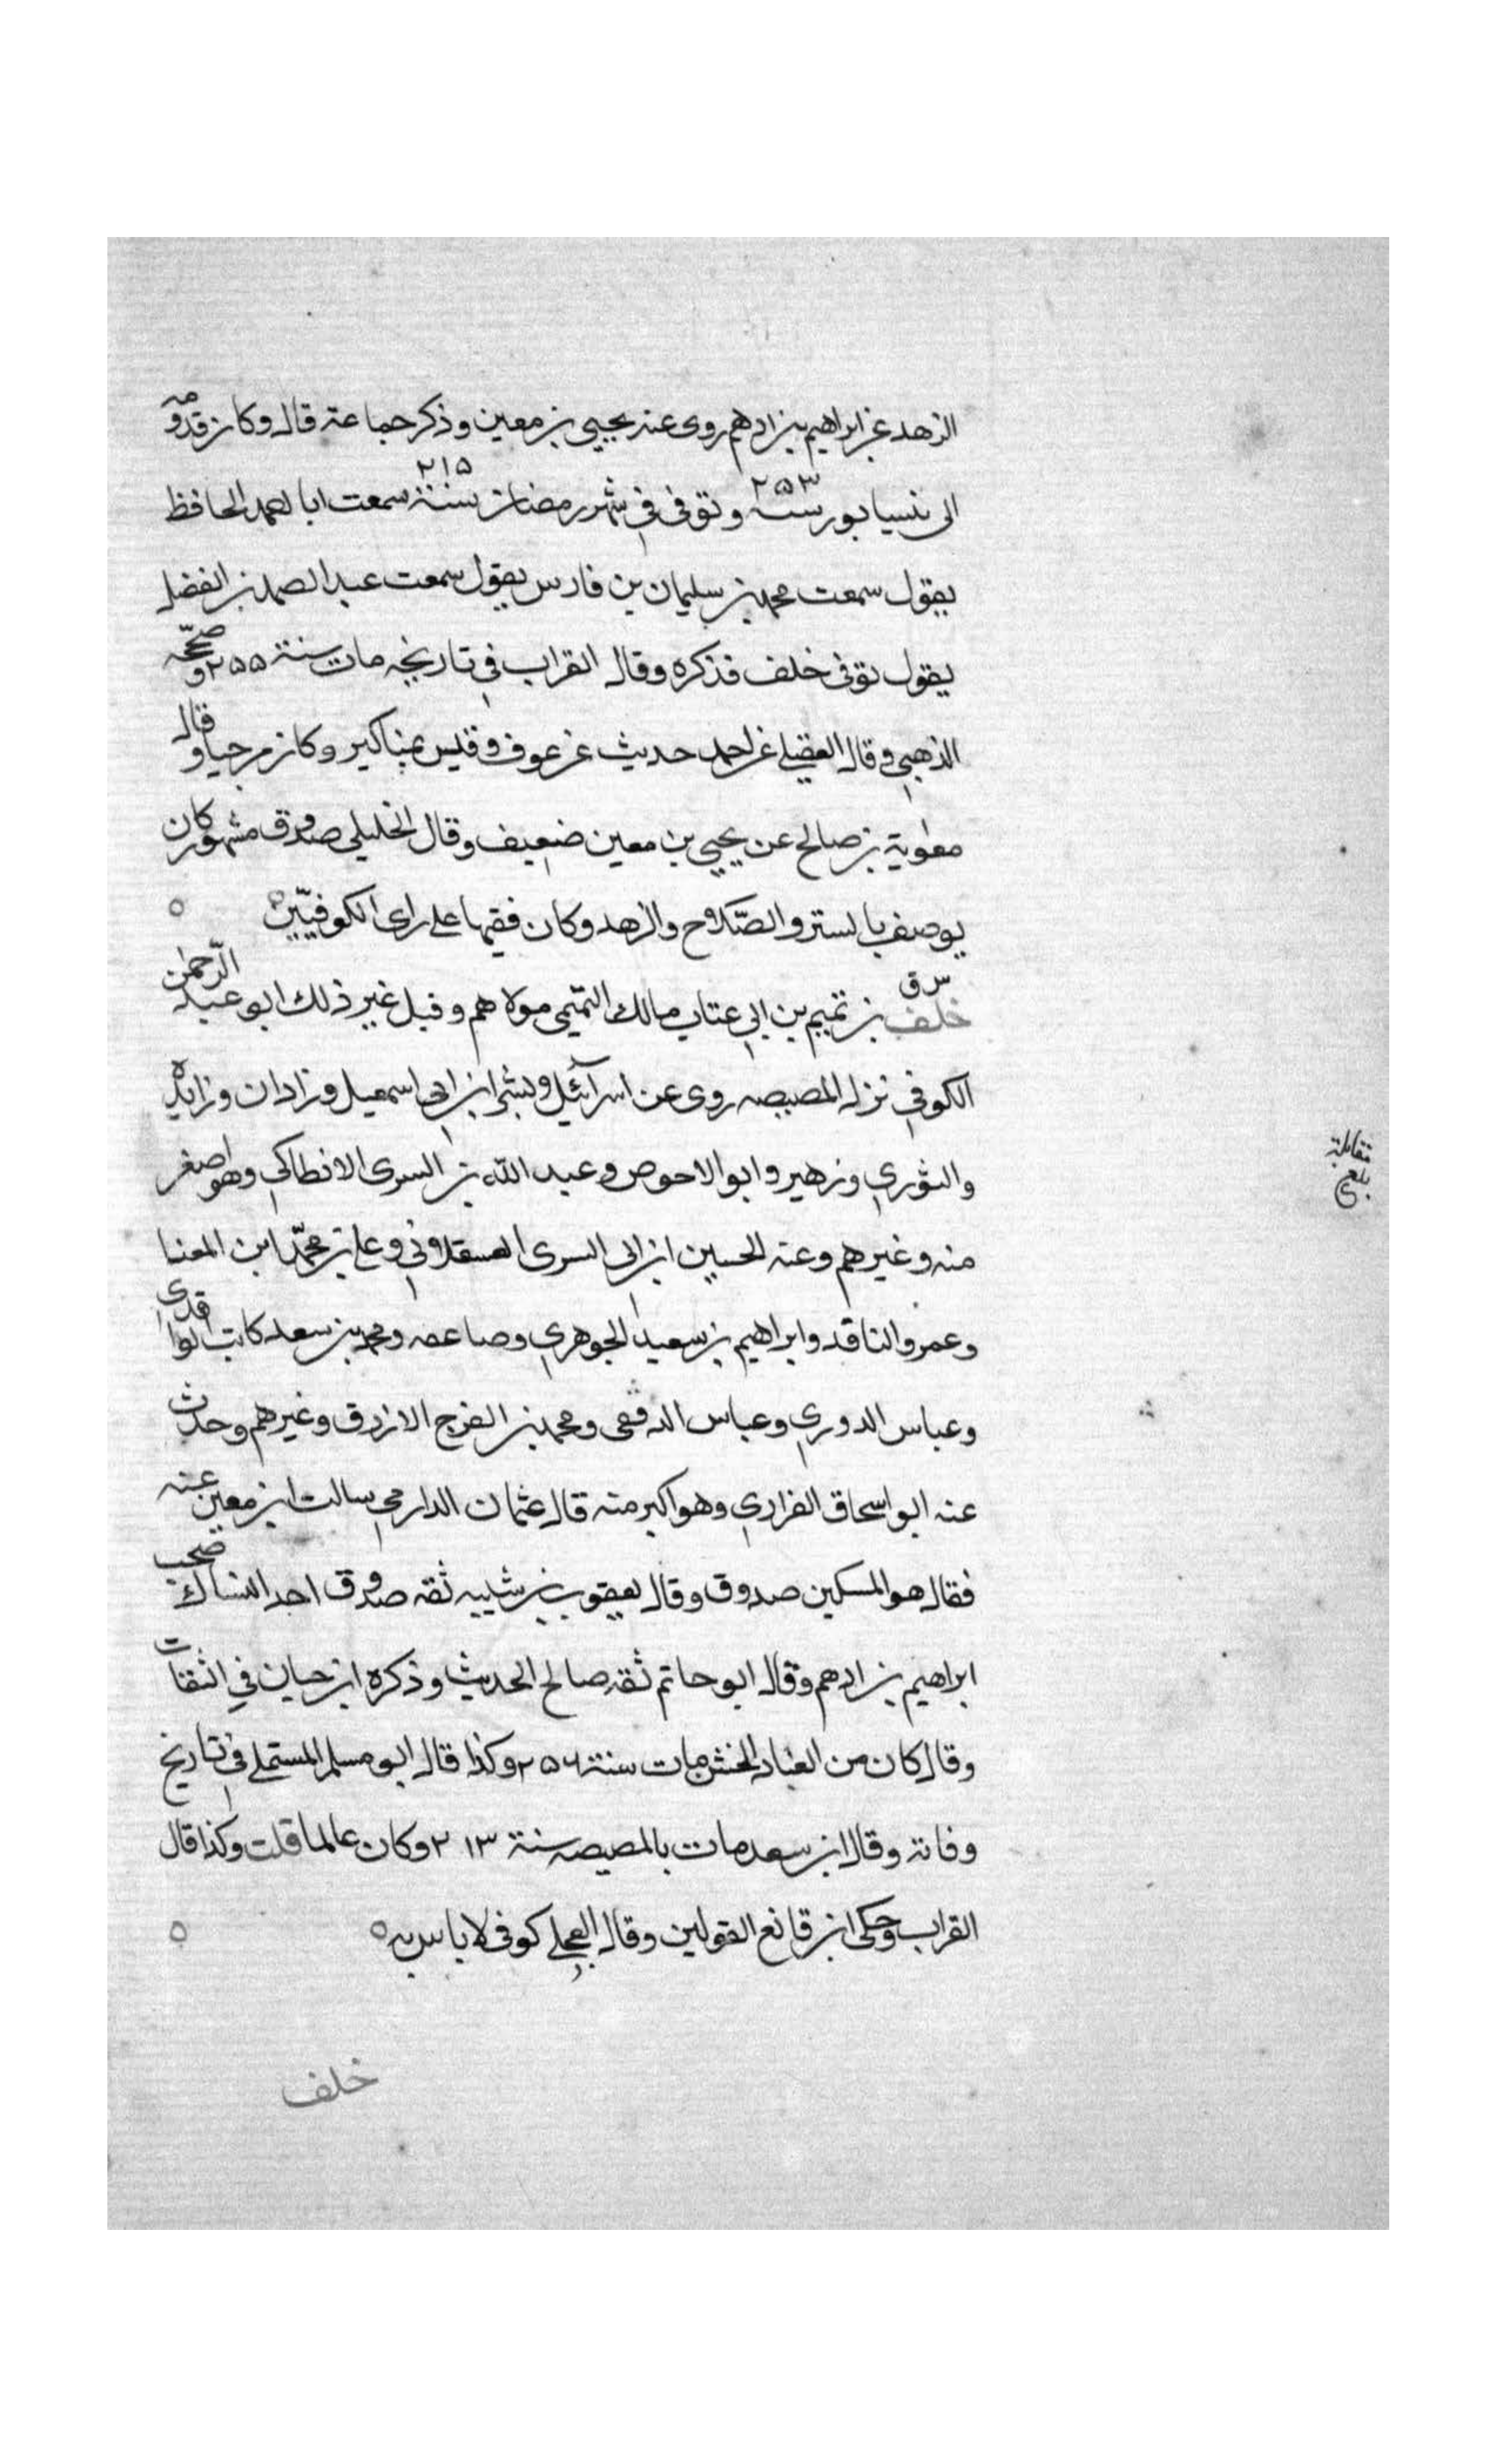 الزهد عن ابراهيم بن ادهم روى عنه يحيى بن معين وذكر جماعة قال وكان قدومه
الى نيسابور سنة ٢٥٣ وتوفى في شهر رمضان سنة ٢١٥ سمعت ابا احمد الحافظ
يقول سمعت محمد بن سليمان بن فارس يقول سمعت عبد الصمد بن الفضل
يقول توفى خلف فذكره وقال القراب في تاريخه مات سنة ٢٥٥ وصححه
الذهبي وقال العقيلي عن احمد حديث عن عوف وقيس بمناكير وكان مرجيا وقال
معوية بن صالح عن يحيى بن معين ضعيف وقال الخليلي صدوق مشهور كان
يوصف بالستر والصّلاح والزهد وكان فقيها على راى الكوفيّين ٥ ٥
س ق
خلف بن تميم بن ابي عتاب مالك التميمى مولاهم وقيل غير ذلك ابو عبد الرّحمن
الكوفي نزل المصيصه روى عن اسرآئيل وبشر ابن ابى اسمعيل وزادان وزايدة
والثوري وزهير وابو الاحوص وعبد الله بن السرى الانطاكي وهو اصغر
منه وغيرهم وعنه الحسين ابن ابى السرى العسقلاني وعلى بن محمّد ابن المعنا
وعمرو الناقد وابراهيم بن سعيد الجوهري وصاعقه ومحمد بن سعد كاتب الواقدى
وعباس الدوري وعباس الدقفى ومحمد بن الفرج الازرق وغيرهم وحدث
عنه ابو اسحاق الفزاري وهو اكبر منه قال عثمان الدارمي سالت ابن معين عنه
فقال هو المسكين صدوق وقال يعقوب بن شيبه ثقه صدوق احد النساك صحب
ابراهيم بن ادهم وقال ابو حاتم ثقه صالح الحديث وذكره ابن حبان في الثقات
وقال كان من العباد الخشن مات سنة ٢٥٦ وكذا قال ابو مسلم المستملى في تاريخ
وفاته وقال ابن سعد مات بالمصيصه سنة ٢١٣ وكان عالما قلت وكذا قال
القراب وحكى ابن قانع القولين وقال العجلي كوفى لا باس به ٥ ٥
خلف
مقابلة
بلغ